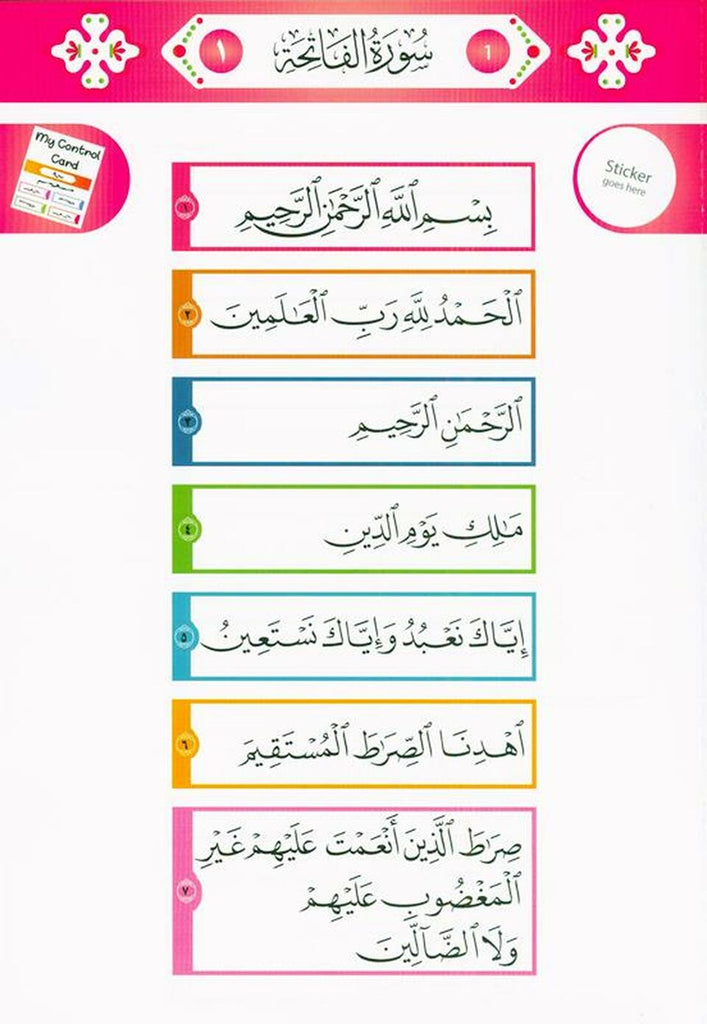 ٦ سُورَةُ الفَاتِحَةِ ١
My Control
Card
Sticker
goes here
بِسْمِ ٱللَّهِ ٱلرَّحْمَٰنِ ٱلرَّحِيمِ ١
ٱلْحَمْدُ لِلَّهِ رَبِّ ٱلْعَٰلَمِينَ ٢
ٱلرَّحْمَٰنِ ٱلرَّحِيمِ ٣
مَٰلِكِ يَوْمِ ٱلدِّينِ ٤
إِيَّاكَ نَعْبُدُ وَإِيَّاكَ نَسْتَعِينُ ٥
ٱهْدِنَا ٱلصِّرَٰطَ ٱلْمُسْتَقِيمَ ٦
صِرَٰطَ ٱلَّذِينَ أَنْعَمْتَ عَلَيْهِمْ غَيْرِ
ٱلْمَغْضُوبِ عَلَيْهِمْ ٧
وَلَا ٱلضَّآلِّينَ